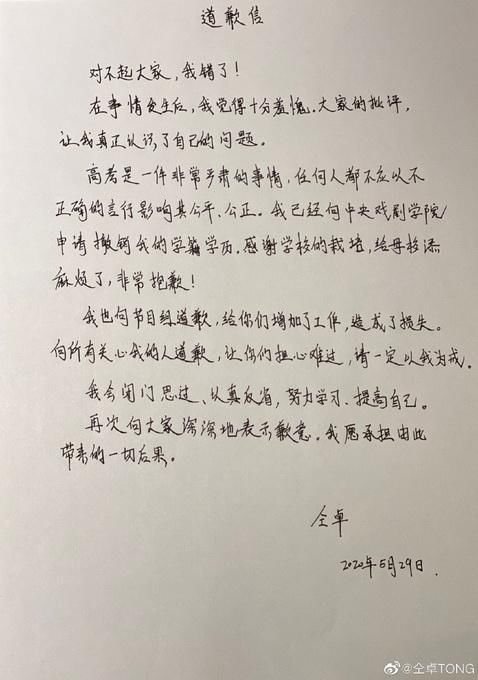 道歉信
对不起大家，我错了！
在事情发生后，我觉得十分羞愧。大家的批评，
让我真正认识了自己的问题。
高考是一件非常严肃的事情，任何人都不应以不
正确的言行影响其公平、公正。我已经向中央戏剧学院
申请撤销我的学籍学历，感谢学校的栽培，给母校添
麻烦了，非常抱歉！
我也向节目组道歉，给你们增加了工作，造成了损失。
向所有关心我的人道歉，让你们担心难过，请一定以我为戒。
我会闭门思过、认真反省，努力学习、提高自己。
再次向大家深深地表示歉意。我愿承担由此
带来的一切后果。
仝卓
2020年5月29日.
@仝卓TONG